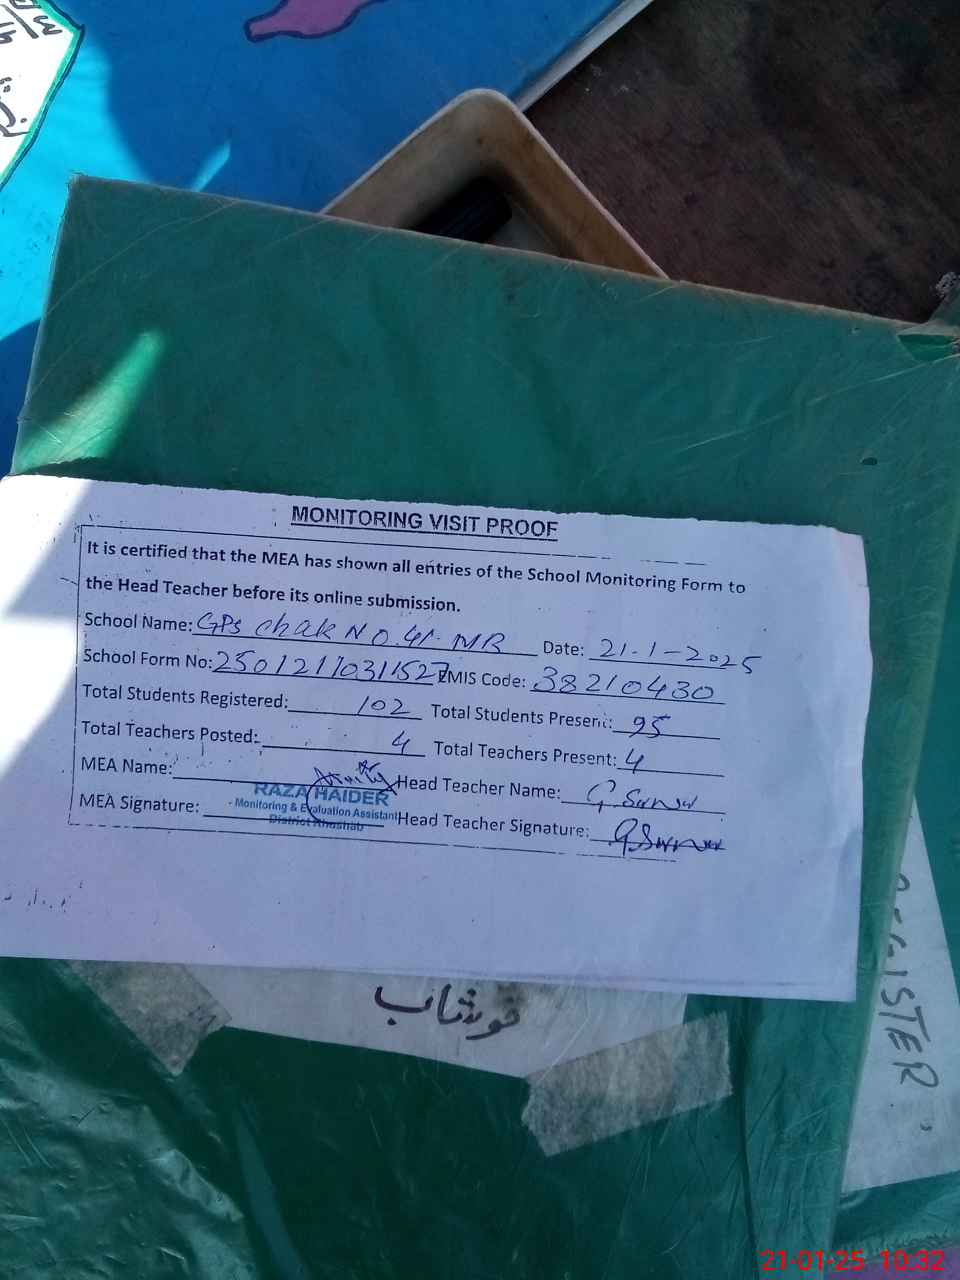 MONITORING VISIT PROOF
It is certified that the MEA has shown all entries of the School Monitoring Form to
the Head Teacher before its online submission.
School Name: GPs chak No. 41. MB Date: 21-1-2025
School Form No: 2501211031527 EMIS Code: 38210430
Total Students Registered: 102 Total Students Present: 95
Total Teachers Posted: 4 Total Teachers Present: 4
MEA Name: Head Teacher Name: G Sarwar
RAZA HAIDER
Monitoring & Evaluation Assistant
District Khushab
MEA Signature: Head Teacher Signature: G Sarwar
خوشاب
REGISTER
21-01-25 10:32